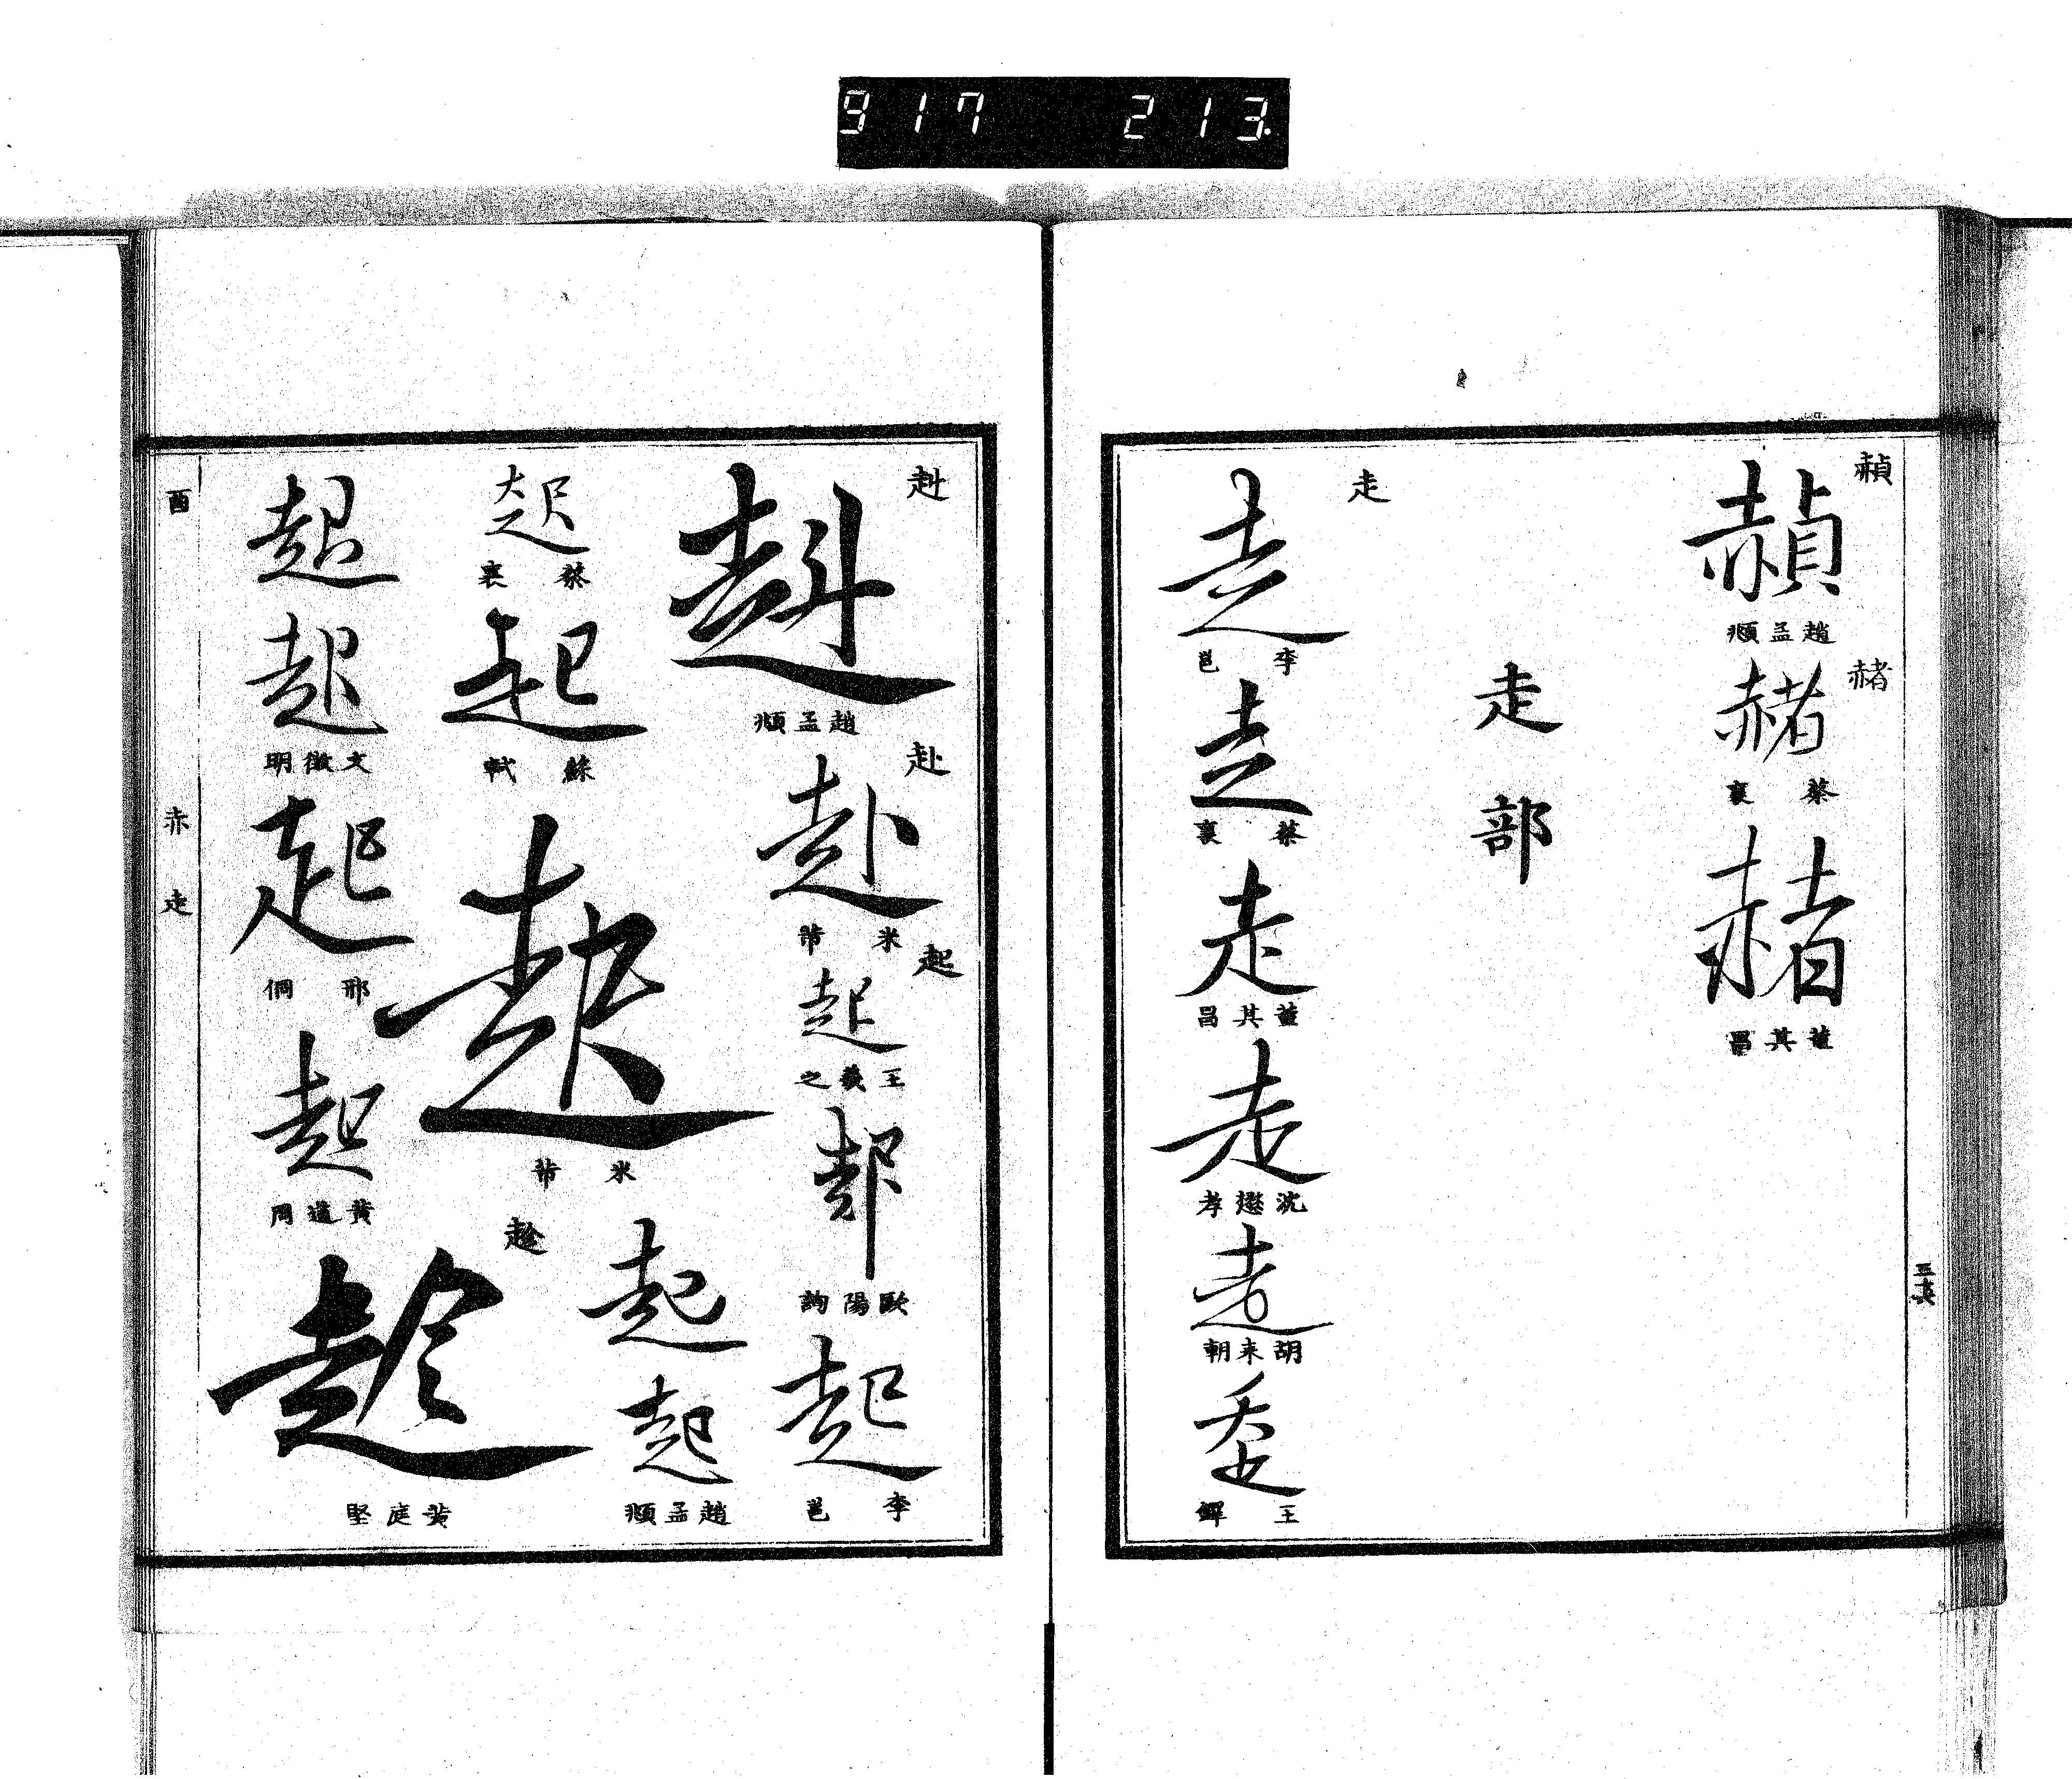 917 213
赬
赬
趙孟頫
赭
赭
蔡襄
赭
董其昌
走部
走
走
李邕
走
蔡襄
走
董其昌
走
沈懋孝
走
胡來朝
走
王鐸
赳
赳
趙孟頫
赴
赴
米芾
起
起
王羲之
起
歐陽詢
起
李邕
起
蔡襄
起
蘇軾
起
米芾
起
起
趙孟頫
起
起
文徵明
起
邢侗
起
黃道周
趁
趁
黃庭堅
酉
赤
走